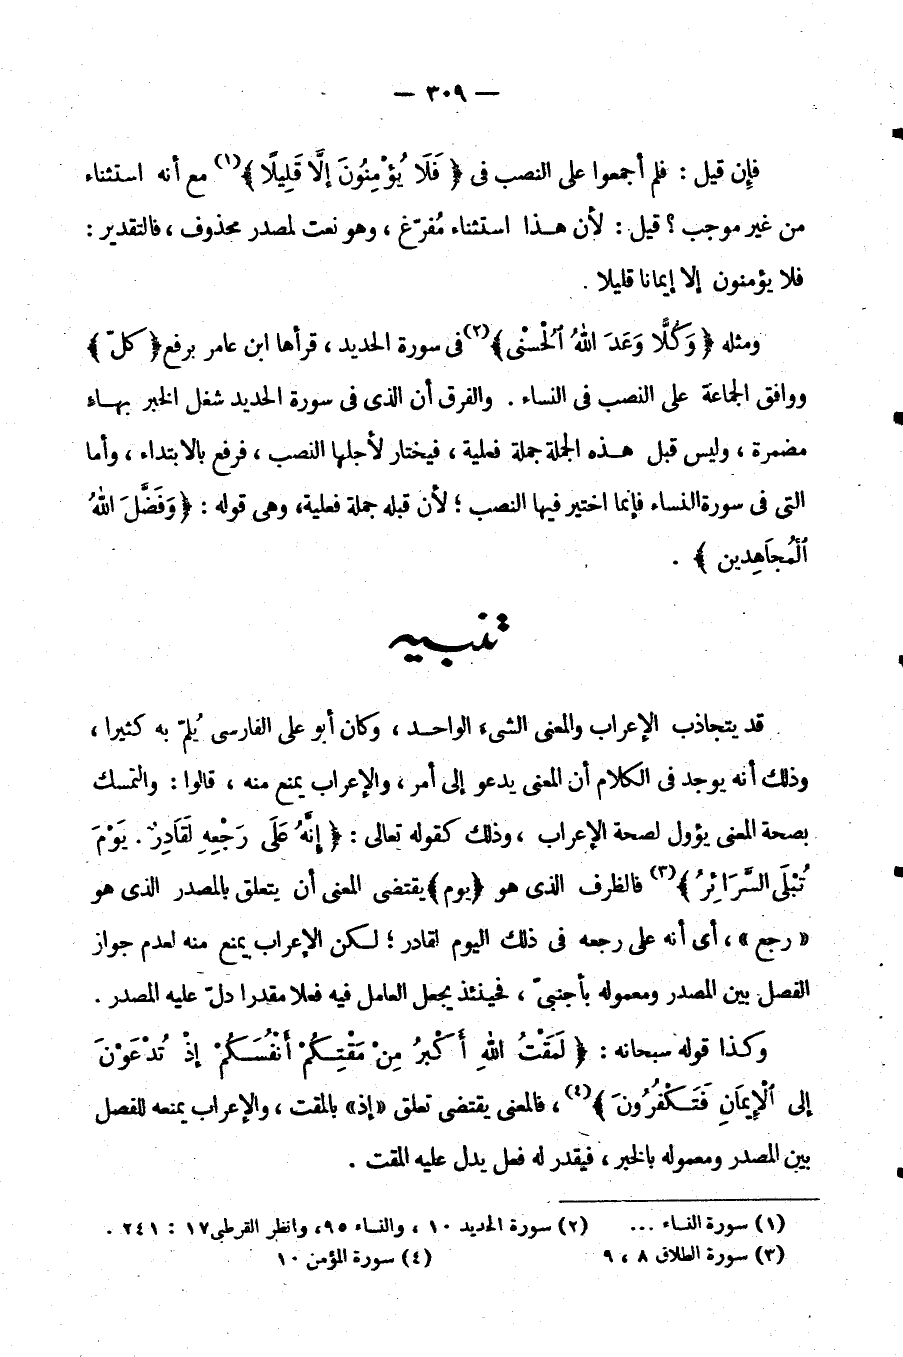 — ٣٠٩ —
فإن قيل : فلم أجمعوا على النصب فى ﴿ فَلَا يُؤْمِنُونَ إِلَّا قَلِيلًا ﴾(١) مع أنه استثناء
من غير موجب ؟ قيل : لأن هذا استثناء مُفرّغ ، وهو نعت لمصدر محذوف ، فالتقدير :
فلا يؤمنون إلا إيمانا قليلا .
ومثله ﴿ وَكُلًّا وَعَدَ اللهُ ٱلْحُسْنٰى ﴾(٢) فى سورة الحديد ، قرأها ابن عامر برفع ﴿ كلّ ﴾
ووافق الجماعة على النصب فى النساء . والفرق أن الذى فى سورة الحديد شغل الخبر بهاء
مضمرة ، وليس قبل هذه الجملة جملة فعلية ، فيختار لأجلها النصب ، فرفع بالابتداء ، وأما
التى فى سورة النساء فإنما اختير فيها النصب ؛ لأن قبله جملة فعلية، وهى قوله : ﴿ وَفَضَّلَ اللهُ
ٱلْمُجَاهِدين ﴾ .
تنبيه
قد يتجاذب الإعراب والمعنى الشىء الواحد ، وكان أبو على الفارسى يُلمّ به كثيرا ،
وذلك أنه يوجد فى الكلام أن المعنى يدعو إلى أمر ، والإعراب يمنع منه ، قالوا : والتمسك
بصحة المعنى يؤول لصحة الإعراب ، وذلك كقوله تعالى : ﴿ إِنَّهُ عَلَى رَجْعِهِ لَقَادِرٌ . يَوْمَ
تُبْلَى السَّرَائِرُ ﴾(٣) فالظرف الذى هو ﴿يوم﴾ يقتضى المعنى أن يتعلق بالمصدر الذى هو
« رجع » ، أى أنه على رجعه فى ذلك اليوم لقادر ؛ لكن الإعراب يمنع منه لعدم جواز
الفصل بين المصدر ومعموله بأجنبىّ ، فحينئذ يجعل العامل فيه فعلا مقدرا دلّ عليه المصدر .
وكذا قوله سبحانه : ﴿ لَمَقْتُ اللهِ أَكْبَرُ مِنْ مَقْتِكُمْ أَنْفُسَكُمْ إِذْ تُدْعَوْنَ
إلى ٱلْإِيمَانِ فَتَكْفُرُونَ ﴾(٤) ، فالمعنى يقتضى تعلق «إذ» بالمقت ، والإعراب يمنعه للفصل
بين المصدر ومعموله بالخبر ، فيقدر له فعل يدل عليه المقت .
(١) سورة النساء ... (٢) سورة الحديد ١٠ ، والنساء ٩٥، وانظر القرطبى١٧ : ٢٤١ .
(٣) سورة الطلاق ٨ ، ٩ (٤) سورة المؤمن ١٠